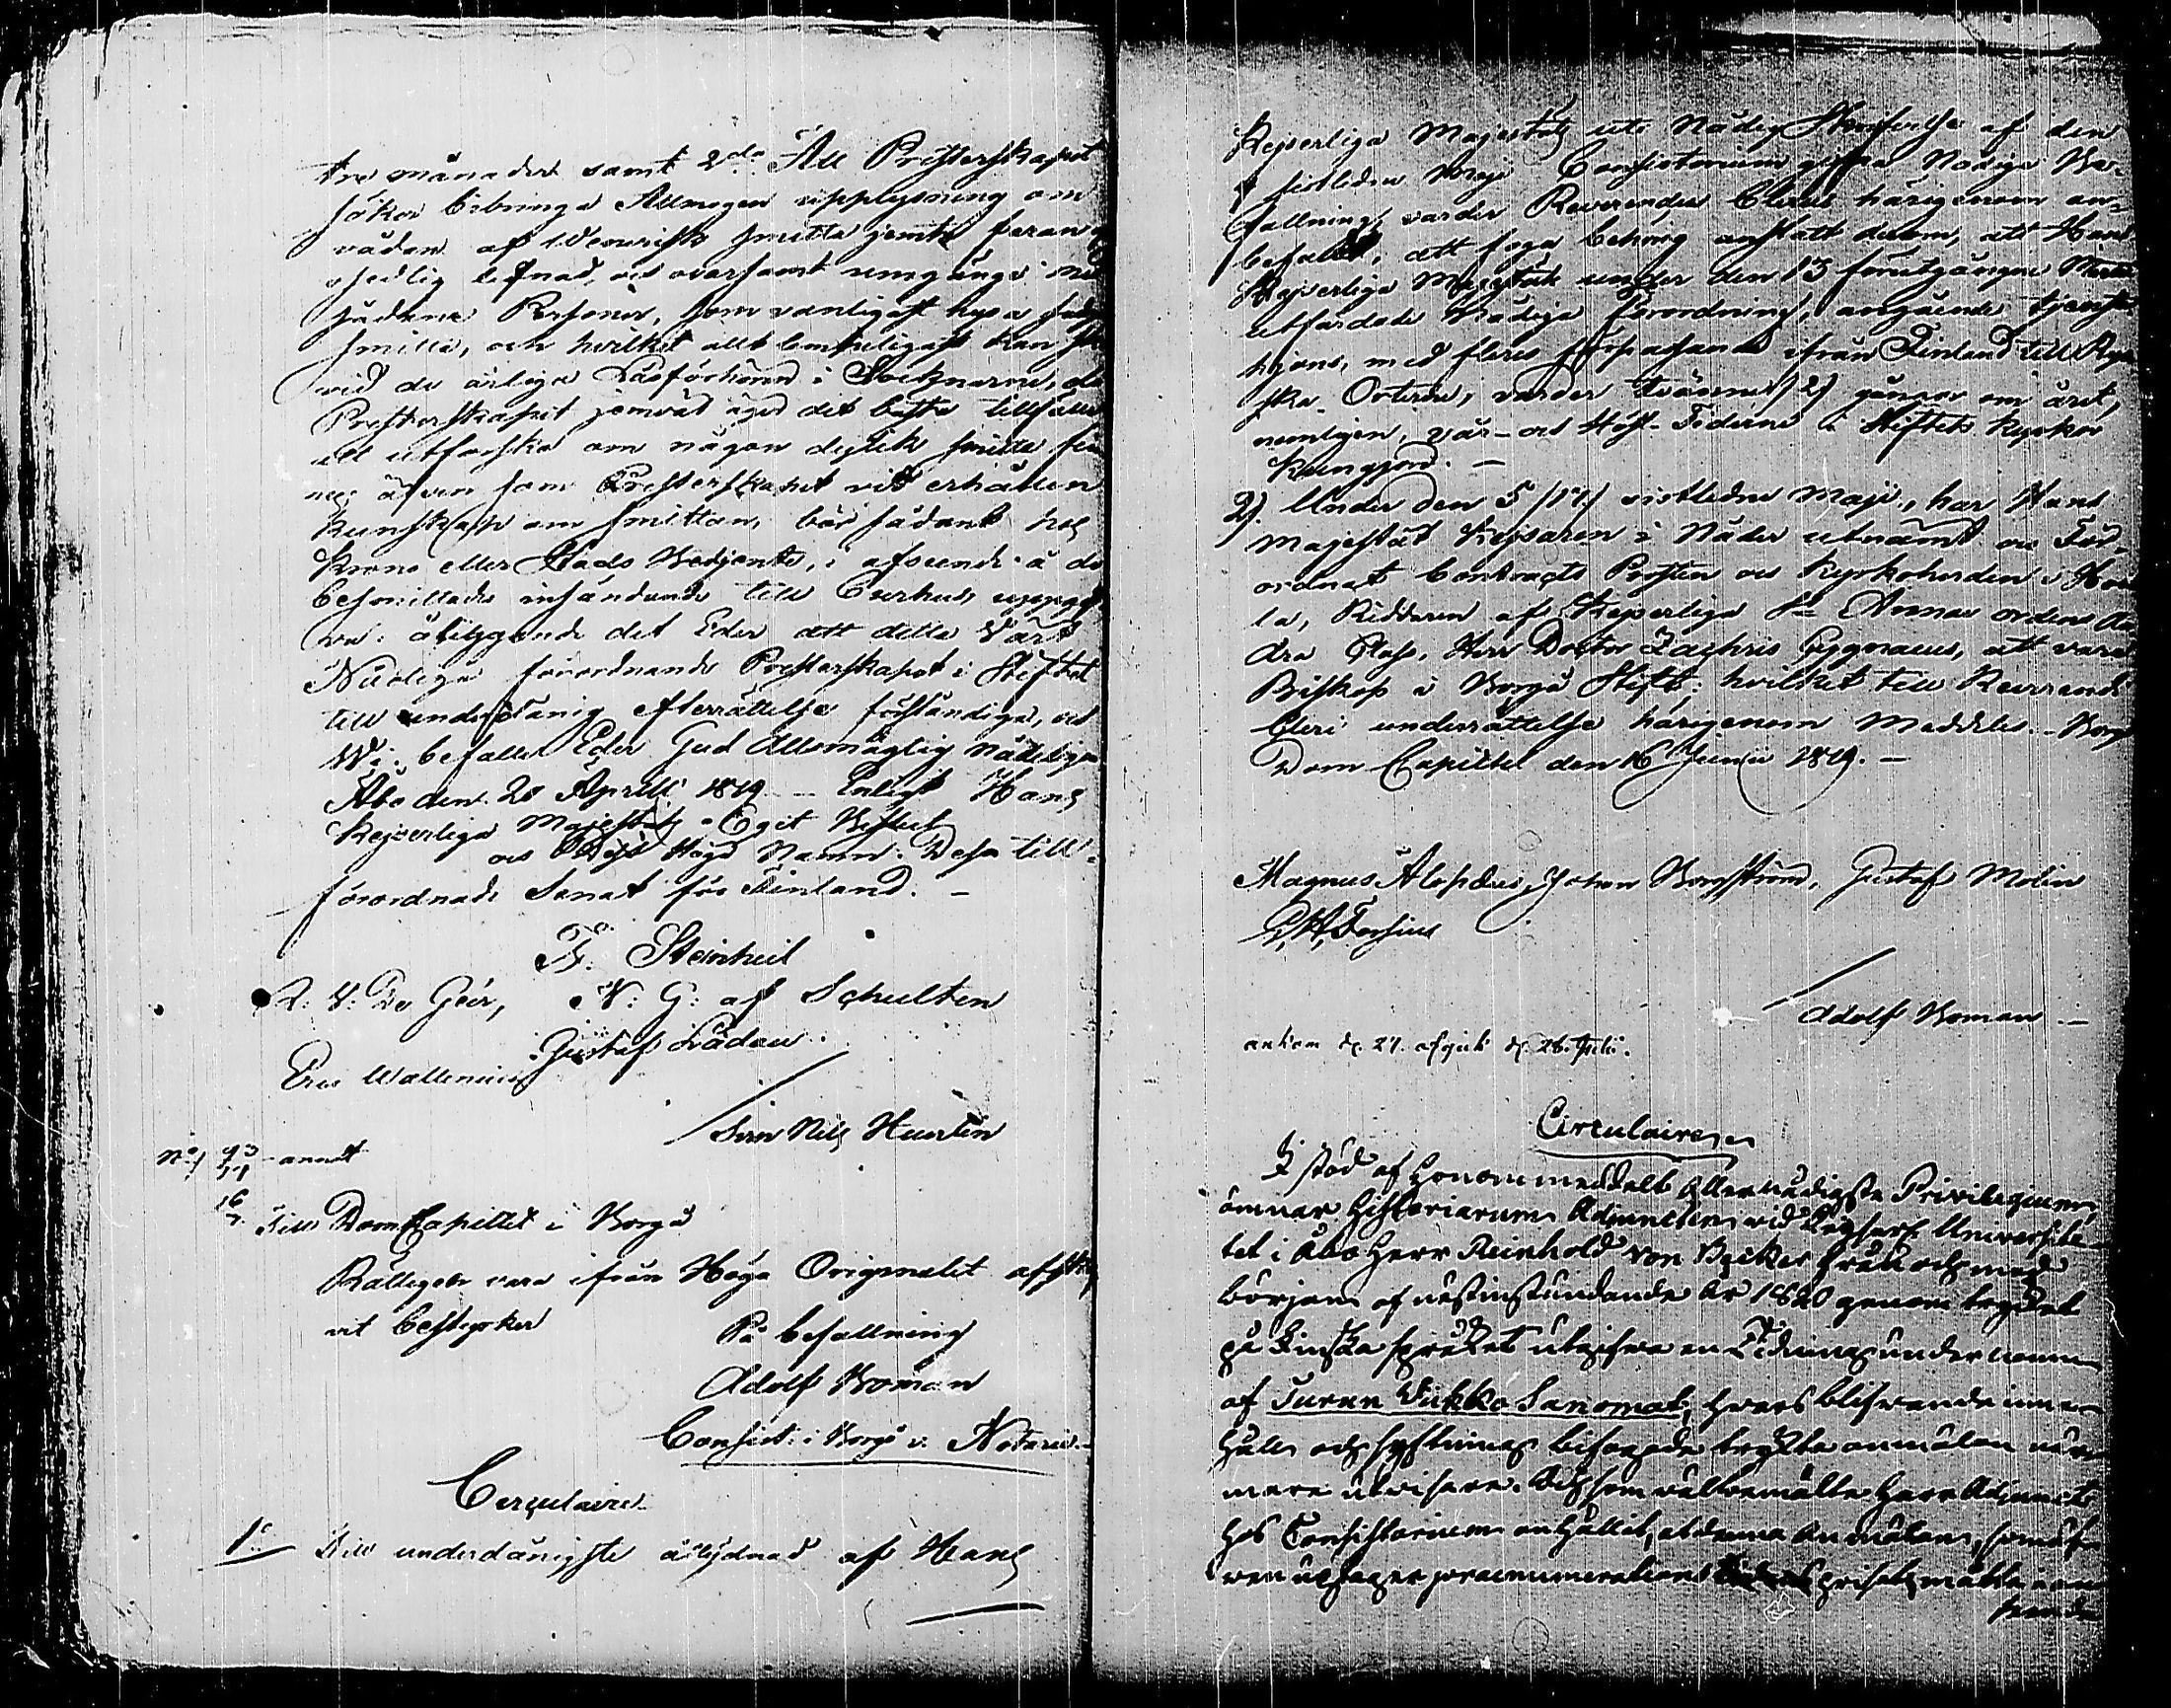 tre månader samt 2do Att Presterskapet
söker bibringa Allmogen upplysning om
vådan af Venerisk smitta jemte faran
osedlig lefnad, och ovarsamt umgänge med
sådane Personer, som vanligast hysa sådan
smitta, och hvilket allt lämpeligast kan ske
vid de årliga Läsförhören i Socknarne, då
Presterskapet jemväl äger det bästa tillfälle
att utforska om någon dylik smitta fin
nes; äfven som Presterskapet vid erhållen
kunskap om smittan, bör sådant hos
Krono eller Stads Betjente, i afseende å de
besmittades insändande till Curhus, uppgif
va: åliggande det Eder att detta Vårt
Nådiga förordnande Presterskapet i Stiftet
till underdånig efterrättelse förständiga, och
Wi befalle Eder Gud Allsmägtig nådeligen
Åbo den 20 April 1819. — Enligt Hans
Kejserliga Majestäts Eget Beslut
och i Dess Höga Namn. Dess till-
förordnade Senat för Finland. —
F. Steinheil
R. V: De Geer, N: G: af Schultén
Gustaf Ladau.
Eric Wallenius
Sven Nils Hurtin
No 93 annat
16
Till DomCapitlet i Borgå
Rätteligen vara ifrån Höga Originalet afskri
vit bestyrker
På befallning
Adolf Boman
Consist: i Borgå v. Notarie
Circulaire
1o Till underdånigste åtlydnad af Hans
Kejserliga Majestäts uti Nådig Skrifvelse af den
sistledne Maji Consistorium gifna Nådiga Be-
fallning, varder Reverendus Clerus härigenom an-
befald, att foga behörig anstalt derom, att Hans
Kejserliga Majestäts under den 13 förutgångne Martii
utfärdade Nådiga Förordning, angående tjenste
hjons, med fleres förpassande ifrån Finland till Rys
ska Orterne, varder tvänne /2/ gånger om året,
nemligen, vår- och Höst-Tiderne i Stiftets kyrkor
kungjord. —
2). Under den 5 /17/ sistledne Maji, har Hans
Majestät Kejsaren i Nåder utnämt och För-
ordnat Contracts Prosten och Kyrkoherden i Hou
la, Riddaren af Kejserliga Ste Annæ ordens An
dra Class, Herr Doctor Zachris Cygnæus, att vara
Biskop i Borgå Stift: hvilket till Reverendi
Cleri underrättelse härigenom meddeles. Borgå
Dom Capitel den 16 Junii 1819. —
Magnus Alopæus, Johan Borgström, Gustaf Molin
Forsius
Adolf Boman —
ankom d. 27. afgick d. 28. Julii.
Circulaire
I stöd af Honom meddelt Allernådigste Privilegium,
ämnar Historiarum Adjuncten vid Kejserl. Universite
tet i Åbo Herr Reinhold von Becker från och med
början af nästinstundande År 1820 genom trycket
på Finska språket utgifva en Tidning under namn
af Turun Wiikko Sanomat, hvars blifvande inne
håll och syftning bifogade tryckte anmälan när
mare utvisar. Och som välbemälte Herr Adjunct
hos Consistorium anhållit, at denna Anmälan, som äf
ven upptager prænumerations priset, måtte